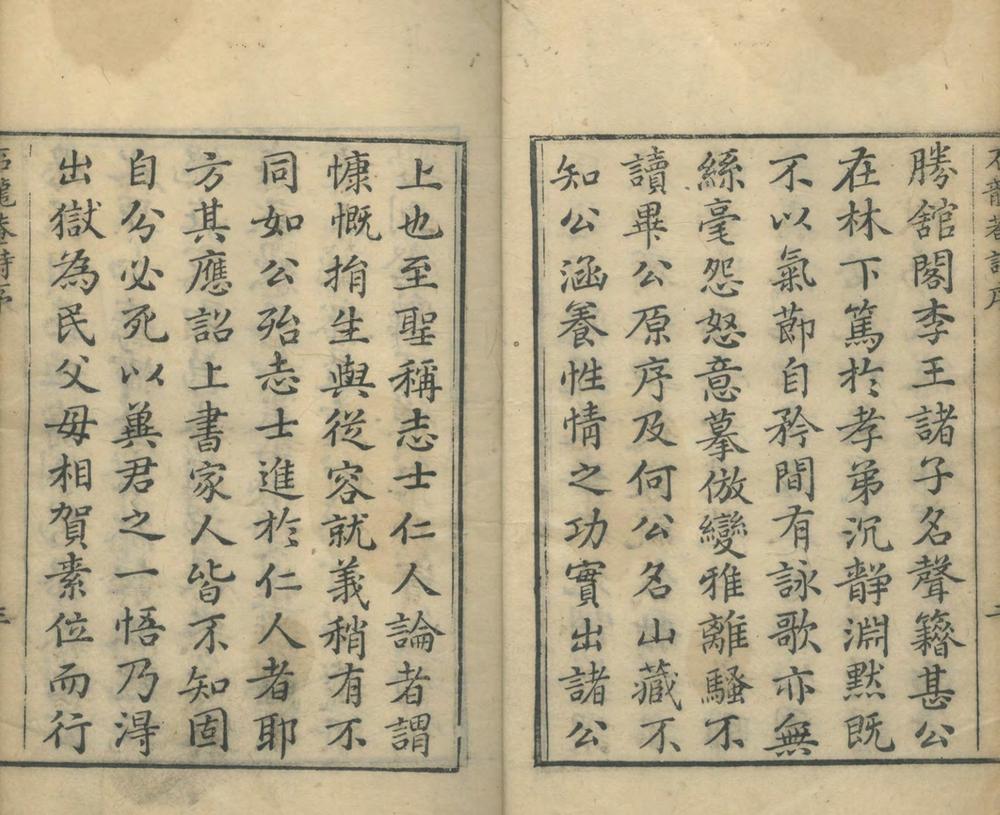 勝舘閣李王諸子名聲籍甚公
在林下篤於孝弟沉靜淵默既
不以氣節自矜間有詠歌亦無
絲毫怨怒意摹倣變雅離騷不
讀畢公原序及何公名山藏不
知公涵養性情之功實出諸公
上也至聖稱志士仁人論者謂
慷慨捐生與從容就義稍有不
同如公殆志士進於仁人者耶
方其應詔上書家人皆不知固
自分必死以冀君之一悟乃淂
出獄為民父母相賀素位而行